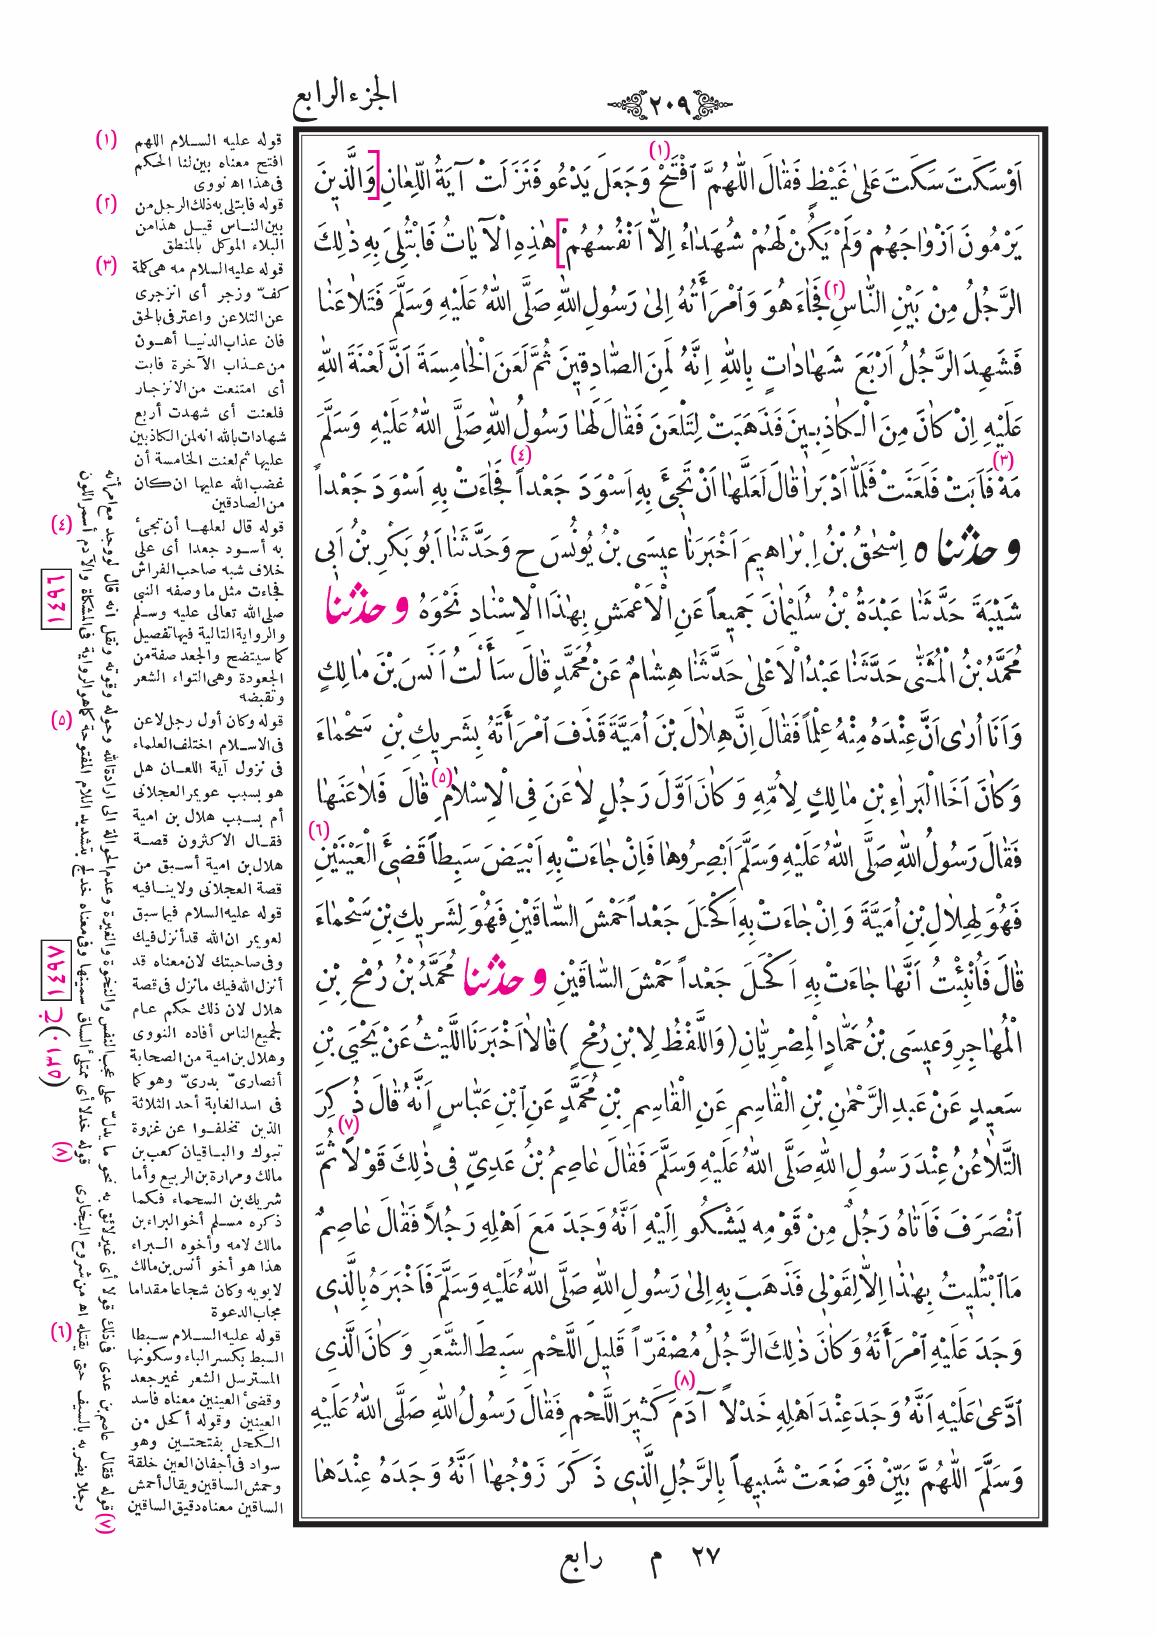 الجزء الرابع
٢٠٩
اَوْ سَكَتَ سَكَتَ عَلىٰ غَيْظٍ فَقٰالَ اللّٰهُمَّ ٱفْتَحْ (١) وَجَعَلَ يَدْعُو فَنَزَلَتْ آيَةُ اللِّعٰانِ [وَالَّذِينَ
يَرْمُونَ اَزْوٰاجَهُمْ وَلَمْ يَكُنْ لَهُمْ شُهَدٰاءُ اِلاّٰ اَنْفُسُهُمْ] هٰذِهِ الْآيٰاتُ فَابْتُلِىَ بِهِ ذٰلِكَ
الرَّجُلُ مِنْ بَيْنِ النّٰاسِ (٢) فَجٰاءَ هُوَ وَٱمْرَأَتُهُ اِلىٰ رَسُولِ اللّٰهِ صَلَّى اللّٰهُ عَلَيْهِ وَسَلَّمَ فَتَلاٰعَنٰا
فَشَهِدَ الرَّجُلُ اَرْبَعَ شَهٰادٰاتٍ بِاللّٰهِ اِنَّهُ لَمِنَ الصّٰادِقِينَ ثُمَّ لَعَنَ الْخٰامِسَةَ اَنَّ لَعْنَةَ اللّٰهِ
عَلَيْهِ اِنْ كٰانَ مِنَ الْكٰاذِبِينَ فَذَهَبَتْ لِتَلْعَنَ فَقٰالَ لَهٰا رَسُولُ اللّٰهِ صَلَّى اللّٰهُ عَلَيْهِ وَسَلَّمَ
(٣) مَهْ فَاَبَتْ فَلَعَنَتْ فَلَمّٰا اَدْبَرٰا قٰالَ لَعَلَّهٰا اَنْ تَجِىَٔ بِهِ اَسْوَدَ جَعْداً (٤) فَجٰاءَتْ بِهِ اَسْوَدَ جَعْداً
و حدثنا ٥ اِسْحٰقُ بْنُ اِبْرٰاهِيمَ اَخْبَرَنٰا عِيسَى بْنُ يُونُسَ ح وَحَدَّثَنٰا اَبُو بَكْرِ بْنُ اَبِى
شَيْبَةَ حَدَّثَنٰا عَبْدَةُ بْنُ سُلَيْمٰانَ جَمِيعاً عَنِ الْاَعْمَشِ بِهٰذَا الْاِسْنٰادِ نَحْوَهُ و حدثنا
مُحَمَّدُ بْنُ الْمُثَنّٰى حَدَّثَنٰا عَبْدُ الْاَعْلىٰ حَدَّثَنٰا هِشٰامٌ عَنْ مُحَمَّدٍ قٰالَ سَأَلْتُ اَنَسَ بْنَ مٰالِكٍ
وَاَنَا اُرٰى اَنَّ عِنْدَهُ مِنْهُ عِلْماً فَقٰالَ اِنَّ هِلاٰلَ بْنَ اُمَيَّةَ قَذَفَ ٱمْرَأَتَهُ بِشَرِيكِ بْنِ سَحْمٰاءَ
وَكٰانَ اَخَا الْبَرٰاءِ بْنِ مٰالِكٍ لِاُمِّهِ وَكٰانَ اَوَّلَ رَجُلٍ لاٰعَنَ فِى الْاِسْلاٰمِ (٥) قٰالَ فَلاٰعَنَهٰا
فَقٰالَ رَسُولُ اللّٰهِ صَلَّى اللّٰهُ عَلَيْهِ وَسَلَّمَ اَبْصِرُوهٰا فَاِنْ جٰاءَتْ بِهِ اَبْيَضَ سَبِطاً قَضِىءَ الْعَيْنَيْنِ (٦)
فَهُوَ لِهِلاٰلِ بْنِ اُمَيَّةَ وَ اِنْ جٰاءَتْ بِهِ اَكْحَلَ جَعْداً حَمْشَ السّٰاقَيْنِ فَهُوَ لِشَرِيكِ بْنِ سَحْمٰاءَ
قٰالَ فَاُنْبِئْتُ اَنَّهٰا جٰاءَتْ بِهِ اَكْحَلَ جَعْداً حَمْشَ السّٰاقَيْنِ و حدثنا مُحَمَّدُ بْنُ رُمْحِ بْنِ
الْمُهٰاجِرِ وَعِيسَى بْنُ حَمّٰادٍ الْمِصْرِيّٰانِ (وَاللَّفْظُ لِابْنِ رُمْحٍ) قٰالاٰ اَخْبَرَنَا اللَّيْثُ عَنْ يَحْيَى بْنِ
سَعِيدٍ عَنْ عَبْدِ الرَّحْمٰنِ بْنِ الْقٰاسِمِ عَنِ الْقٰاسِمِ بْنِ مُحَمَّدٍ عَنِ ٱبْنِ عَبّٰاسٍ اَنَّهُ قٰالَ ذُكِرَ
التَّلاٰعُنُ عِنْدَ رَسُولِ اللّٰهِ صَلَّى اللّٰهُ عَلَيْهِ وَسَلَّمَ فَقٰالَ عٰاصِمُ بْنُ عَدِيٍّ فِى ذٰلِكَ قَوْلاً (٧) ثُمَّ
ٱنْصَرَفَ فَاَتٰاهُ رَجُلٌ مِنْ قَوْمِهِ يَشْكُو اِلَيْهِ اَنَّهُ وَجَدَ مَعَ اَهْلِهِ رَجُلاً فَقٰالَ عٰاصِمٌ
مَا ابْتُلِيتُ بِهٰذٰا اِلاّٰ لِقَوْلِى فَذَهَبَ بِهِ اِلىٰ رَسُولِ اللّٰهِ صَلَّى اللّٰهُ عَلَيْهِ وَسَلَّمَ فَاَخْبَرَهُ بِالَّذِى
وَجَدَ عَلَيْهِ ٱمْرَأَتَهُ وَكٰانَ ذٰلِكَ الرَّجُلُ مُصْفَرّاً قَلِيلَ اللَّحْمِ سَبِطَ الشَّعَرِ وَكٰانَ الَّذِى
ٱدَّعىٰ عَلَيْهِ اَنَّهُ وَجَدَ عِنْدَ اَهْلِهِ خَدْلاً (٨) آدَمَ كَثِيرَ اللَّحْمِ فَقٰالَ رَسُولُ اللّٰهِ صَلَّى اللّٰهُ عَلَيْهِ
وَسَلَّمَ اللّٰهُمَّ بَيِّنْ فَوَضَعَتْ شَبِيهاً بِالرَّجُلِ الَّذِى ذَكَرَ زَوْجُهٰا اَنَّهُ وَجَدَهُ عِنْدَهٰا
(١) قوله عليه السلام اللهم
افتح معناه بين لنا الحكم
فى هذا اه نووى
(٢) قوله فابتلى به ذلك الرجل من
بين الناس قيل هذا من
البلاء الموكل بالمنطق
(٣) قوله عليه السلام مه هى كلة
كفّ وزجر أى انزجرى
عن التلاعن واعترفى بالحق
فان عذاب الدنيا أهون
من عذاب الآخرة فابت
أى امتنعت من الانزجار
فلعنت أى شهدت أربع
شهادات بالله انه لمن الكاذبين
عليها ثم لعنت الخامسة أن
غضب الله عليها ان كان
من الصادقين
(٤) قوله قال لعلها أن تجىٔ
به أسود جعدا أى على
خلاف شبه صاحب الفراش
فجاءت مثل ما وصفه النبى
صلى الله تعالى عليه وسلم
والرواية التالية فيها تفصيل
كما سيتضح والجعد صفة من
الجعودة وهى التواء الشعر
وتقبضه
(٥) قوله وكان أول رجل لاعن
فى الاسلام اختلف العلماء
فى نزول آية اللعان هل
هو بسبب عويمر العجلانى
أم بسبب هلال بن امية
فقال الاكثرون قصة
هلال بن امية أسبق من
قصة العجلانى ولا ينافيه
قوله عليه السلام فيما سبق
لعويمر ان الله قد أنزل فيك
وفى صاحبتك لان معناه قد
أنزل الله فيك ما نزل فى قصة
هلال لان ذلك حكم عام
لجميع الناس أفاده النووى
وهلال بن امية من الصحابة
أنصارىّ بدرىّ وهو كما
فى اسد الغابة أحد الثلاثة
الذين تخلفوا عن غزوة
تبوك والباقيان كعب بن
مالك ومرارة بن الربيع وأما
شريك بن السحماء فكما
ذكره مسلم أخو البراء بن
مالك لامه وأخوه البراء
هذا هو أخو أنس بن مالك
لابويه وكان شجاعا مقداما
مجاب الدعوة
(٦) قوله عليه السلام سبطا
السبط بكسر الباء وسكونها
المسترسل الشعر غير جعد
وقضىٔ العينين معناه فاسد
العينين وقوله أكحل من
الكحل بفتحتين وهو
سواد فى أجفان العين خلقة
وحمش الساقين ويقال أحمش
الساقين معناه دقيق الساقين
(٧) قوله فقال عاصم بن عدى فى ذلك قولا أى غير لائق به نحو ما يدلّ على عجب النفس والنخوة والغيرة وعدم الحوالة الى ارادة الله وحوله وقوته ونقل انه قال لو وجد مع امرأته
رجلا يضربه بالسيف حتى يقتله اه من شروح البخارى (٨) قوله خدلا أى ممتلىٔ الساق سمينها وفى معناه خدلج بتشديد اللام المفتوحة كما هو الرواية فى المشكاة والآدم أسمر اللون
١٤٩٦
١٤٩٧
٢٧ م رابع